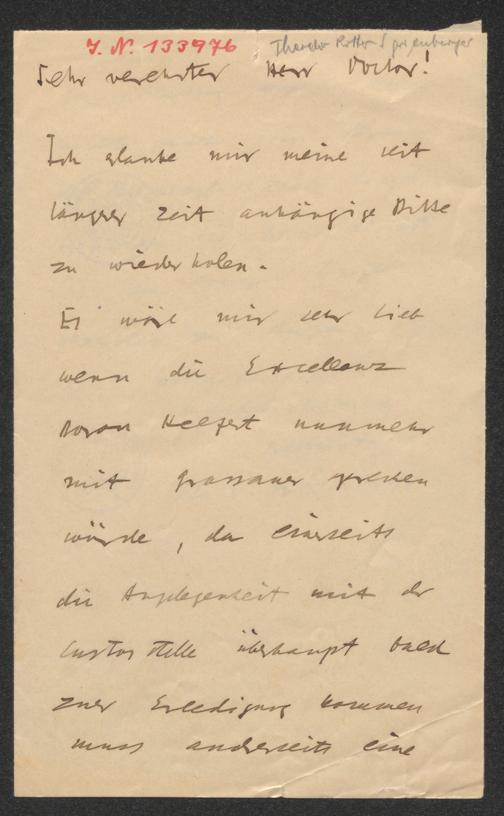 J. N. 133976
Theodor Ritter
Sehr verehrter Herr Doctor!
Ich glaube mir meine seit
längrer Zeit anhängige Bitte
zu wiederholen.
Es wäre mir sehr lieb
wenn die Excellenz
Baron Helfert nunmehr
mit Grassauer sprechen
würde, da einerseits
die Angelegenheit mit der
Custosstelle überhaupt bald
zur Erledigung kommen
muss anderseits eine